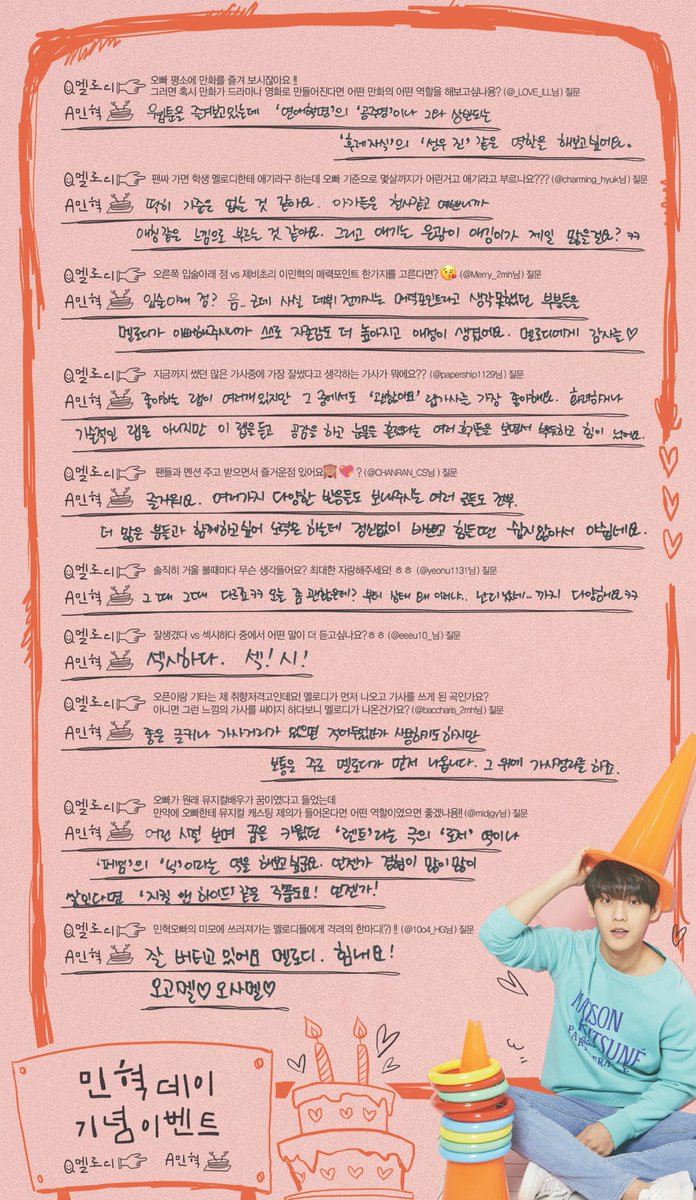 Q멜로디 오빠 평소에 만화를 즐겨 보시잖아요 !!
그러면 혹시 만화가 드라마나 영화로 만들어진다면 어떤 만화의 어떤 역할을 해보고싶나용? (@_LOVE_ILL님) 질문
A민혁 웹툰을 즐겨보고있는데 '연애혁명'의 '공주영'이나 그와 상반되는
'후레자식'의 '선우 진' 같은 역할은 해보고싶어요.
Q멜로디 팬싸 가면 학생 멜로디한테 애기라구 하는데 오빠 기준으로 몇살까지가 어린거고 애기라고 부르나요??? (@charming_hyuk님) 질문
A민혁 딱히 기준은 없는 것 같아요. 아가들은 천사같고 예쁘니까
애칭같은 느낌으로 부르는 것 같아요. 그리고 애기는 은광이 애깅이가 제일 많을걸요? ㅋㅋ
Q멜로디 오른쪽 입술아래 점 vs 제비초리 이민혁의 매력포인트 한가지를 고른다면? 😘 (@Merry_2mh님) 질문
A민혁 입술아래 점? 음.. 근데 사실 데뷔 전까지는 매력포인트라고 생각못했던 부분들을
멜로디가 이뻐해주시니까 스스로 자존감도 더 높아지고 애정이 생겼어요. 멜로디에게 감사를♡
Q멜로디 지금까지 썼던 많은 가사중에 가장 잘썼다고 생각하는 가사가 뭐에요?? (@papership1129님) 질문
A민혁 좋아하는 랩이 여러개 있지만 그 중에서도 '괜찮아요' 랩가사를 가장 좋아해요. 화려하거나
기술적인 랩은 아니지만 이 랩을 듣고 공감을 하고 눈물을 흘렸다는 여러 후기들을 보면서 뿌듯하고 힘이 났어요.
Q멜로디 팬들과 멘션 주고 받으면서 즐거운점 있어요🙈💓? (@CHANRAN_CS님) 질문
A민혁 즐거워요. 여러가지 다양한 반응들도 보내주시는 여러 글들도 전부.
더 많은 분들과 함께하고싶어 노력은 하는데 정신없이 바쁘고 힘들 땐 쉽지않아서 아쉽네요.
Q멜로디 솔직히 거울 볼때마다 무슨 생각들어요? 최대한 자랑해주세요! ㅎㅎ (@yeonu1131님) 질문
A민혁 그때 그때 다르죠ㅋㅋ 오늘 좀 괜찮은데? 부터 상태 왜 이러냐.. 난리났네.. 까지 다양해요ㅋㅋ
Q멜로디 잘생겼다 vs 섹시하다 중에서 어떤 말이 더 듣고싶나요?ㅎㅎ (@eeeu10_님) 질문
A민혁 섹시하다. 섹! 시!
Q멜로디 오픈이랑 기타는 제 취향저격고인데요! 멜로디가 먼저 나오고 가사를 쓰게 된 곡인가요?
아니면 그런 느낌의 가사를 써야지 하다보니 멜로디가 나온건가요? (@baccharis_2mh님) 질문
A민혁 좋은 글귀나 가사거리가 있으면 적어두었다가 사용하기도하지만
보통은 주로 멜로디가 먼저 나옵니다. 그 위에 가사정리를 하죠.
Q멜로디 오빠가 원래 뮤지컬배우가 꿈이였다고 들었는데
만약에 오빠한테 뮤지컬 캐스팅 제의가 들어온다면 어떤 역할이였으면 좋겠나용!! (@mldjgy님) 질문
A민혁 어린 시절 보며 꿈을 키웠던 '렌트'라는 극의 '로저' 역이나
'페임'의 '닉'이라는 역을 해보고싶군요. 언젠가 경험이 많이많이
쌓인다면 '지킬 앤 하이드' 같은 작품도요! 언젠가!
Q멜로디 민혁오빠의 미모에 쓰러져가는 멜로디들에게 격려의 한마디(?) !! (@10o4_HG님) 질문
A민혁 잘 버티고 있어요 멜로디. 힘내요!
오고멜♡ 오사멜♡
MAISON
KITSUNÉ
민혁데이
기념이벤트
Q멜로디 A민혁